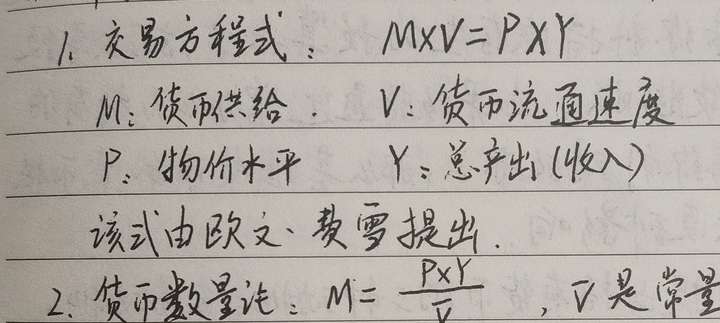 1. 交易方程式： M×V=P×Y
M：货币供给． V：货币流通速度
P：物价水平 Y：总产出(收入)
该式由欧文·费雪提出．
2. 货币数量论：M= P×Y / V̄ ，V̄ 是常量